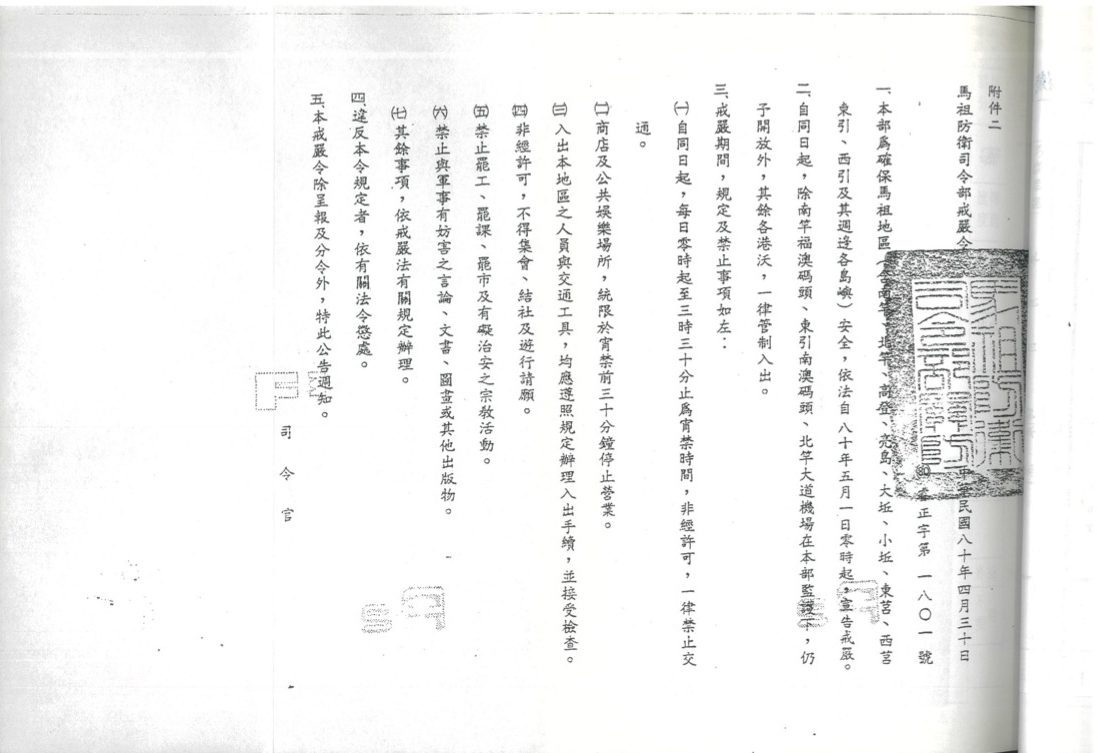 附件二
馬祖防衛司令部戒嚴令 中華民國八十年四月三十日
正字第一八〇一號
一、本部為確保馬祖地區(含南竿、北竿、高登、亮島、大坵、小坵、東莒、西莒
東引、西引及其週邊各島嶼)安全,依法自八十年五月一日零時起,宣告戒嚴。
二、自同日起,除南竿福澳碼頭、東引南澳碼頭、北竿大道機場在本部監護下,仍
予開放外,其餘各港沃,一律管制入出。
三、戒嚴期間,規定及禁止事項如左:
㈠自同日起,每日零時起至三時三十分止為宵禁時間,非經許可,一律禁止交
通。
㈡商店及公共娛樂場所,統限於宵禁前三十分鐘停止營業。
㈢入出本地區之人員與交通工具,均應遵照規定辦理入出手續,並接受檢查。
㈣非經許可,不得集會、結社及遊行請願。
㈤禁止罷工、罷課、罷市及有礙治安之宗教活動。
㈥禁止與軍事有妨害之言論、文書、圖畫或其他出版物。
㈦其餘事項,依戒嚴法有關規定辦理。
四、違反本令規定者,依有關法令懲處。
五、本戒嚴令除呈報及分令外,特此公告週知。
司令官